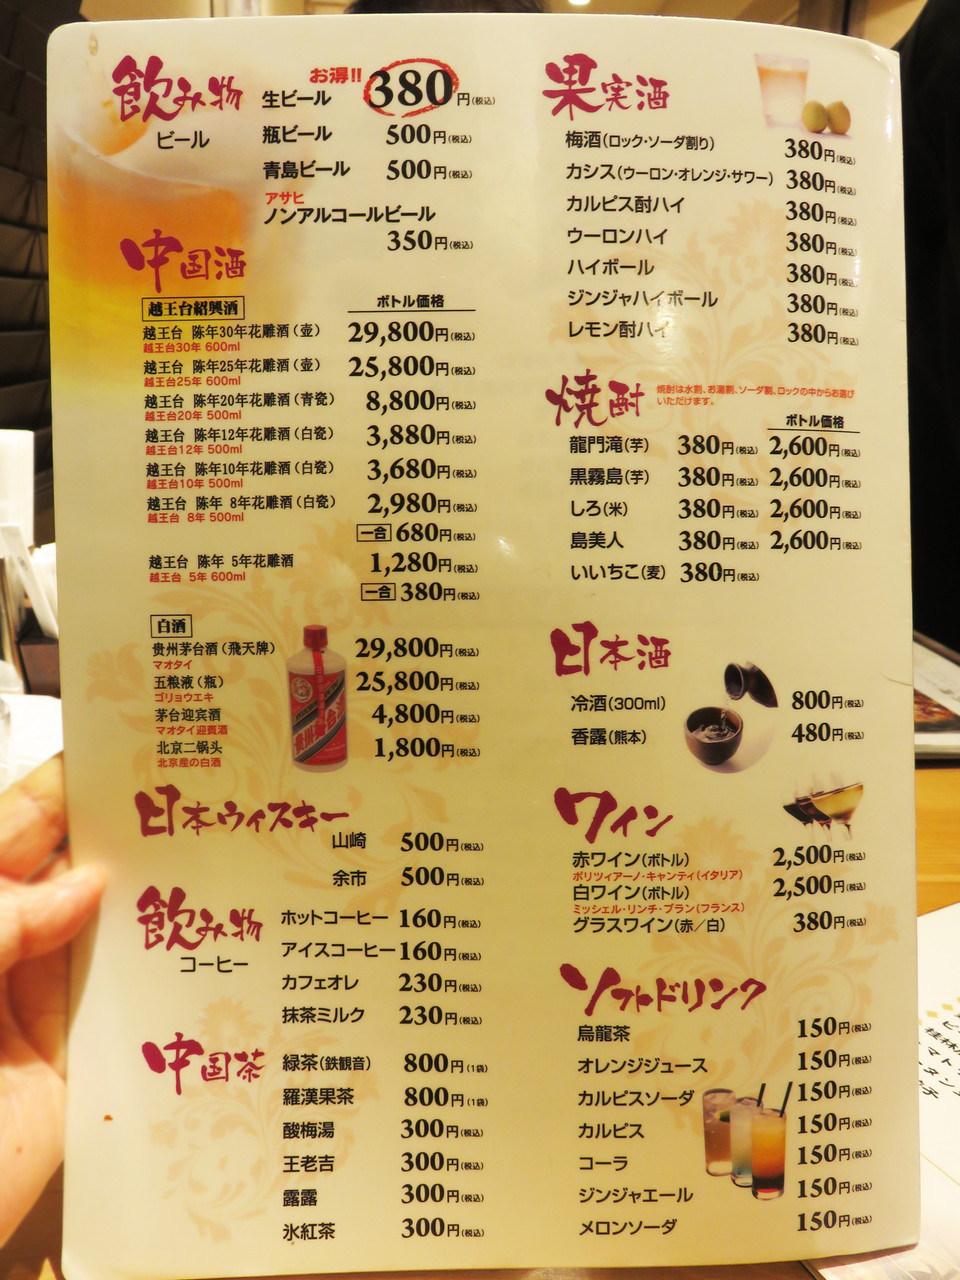 飲み物
ビール
お得!!
生ビール 380円(税込)
瓶ビール 500円(税込)
青島ビール 500円(税込)
アサヒ
ノンアルコールビール
350円(税込)
中国酒
越王台紹興酒 ボトル価格
越王台 陈年30年花雕酒(壺) 29,800円(税込)
越王台30年 600ml
越王台 陈年25年花雕酒(壺) 25,800円(税込)
越王台25年 600ml
越王台 陈年20年花雕酒(青瓷) 8,800円(税込)
越王台20年 500ml
越王台 陈年12年花雕酒(白瓷) 3,880円(税込)
越王台12年 500ml
越王台 陈年10年花雕酒(白瓷) 3,680円(税込)
越王台10年 500ml
越王台 陈年 8年花雕酒(白瓷) 2,980円(税込)
越王台 8年 500ml
一合 680円(税込)
越王台 陈年 5年花雕酒 1,280円(税込)
越王台 5年 600ml
一合 380円(税込)
白酒
贵州茅台酒(飛天牌) 29,800円(税込)
マオタイ
五粮液(瓶) 25,800円(税込)
ゴリョウエキ
茅台迎宾酒 4,800円(税込)
マオタイ迎賓酒
北京二锅头 1,800円(税込)
北京産の白酒
日本ウィスキー
山崎 500円(税込)
余市 500円(税込)
飲み物
コーヒー
ホットコーヒー 160円(税込)
アイスコーヒー 160円(税込)
カフェオレ 230円(税込)
抹茶ミルク 230円(税込)
中国茶
緑茶(鉄観音) 800円(1袋)
羅漢果茶 800円(1袋)
酸梅湯 300円(税込)
王老吉 300円(税込)
露露 300円(税込)
氷紅茶 300円(税込)
果実酒
梅酒(ロック・ソーダ割り) 380円(税込)
カシス(ウーロン・オレンジ・サワー) 380円(税込)
カルピス酎ハイ 380円(税込)
ウーロンハイ 380円(税込)
ハイボール 380円(税込)
ジンジャハイボール 380円(税込)
レモン酎ハイ 380円(税込)
焼酎
焼酎は水割、お湯割、ソーダ割、ロックの中からお選び
いただけます。
ボトル価格
龍門滝(芋) 380円(税込) 2,600円(税込)
黒霧島(芋) 380円(税込) 2,600円(税込)
しろ(米) 380円(税込) 2,600円(税込)
島美人 380円(税込) 2,600円(税込)
いいちこ(麦) 380円(税込)
日本酒
冷酒(300ml) 800円(税込)
香露(熊本) 480円(税込)
ワイン
赤ワイン(ボトル) 2,500円(税込)
ポリツィアーノ・キャンティ(イタリア)
白ワイン(ボトル) 2,500円(税込)
ミッシェル・リンチ・ブラン(フランス)
グラスワイン(赤/白) 380円(税込)
ソフトドリンク
烏龍茶 150円(税込)
オレンジジュース 150円(税込)
カルピスソーダ 150円(税込)
カルピス 150円(税込)
コーラ 150円(税込)
ジンジャエール 150円(税込)
メロンソーダ 150円(税込)